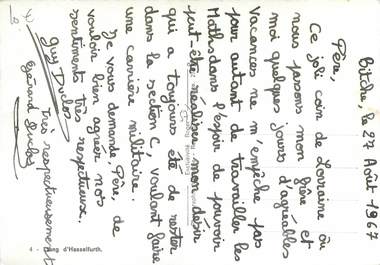 Bitche, le 27 Août 1967
Père,
Ce joli coin de Lorraine où
nous passons mon frère et
moi quelques jours d'agréables
vacances ne m'empêche pas
pour autant de travailler les
Maths dans l'espoir de pouvoir
peut-être réaliser mon désir
qui a toujours été de rester
dans la section C voulant faire
une carrière militaire.
Je vous demande, Père, de
vouloir bien agréer nos
sentiments très respectueux.
Guy Duclos
très respectueusement
Gérard Duclos
4 - Etang d'Hasselfurth.